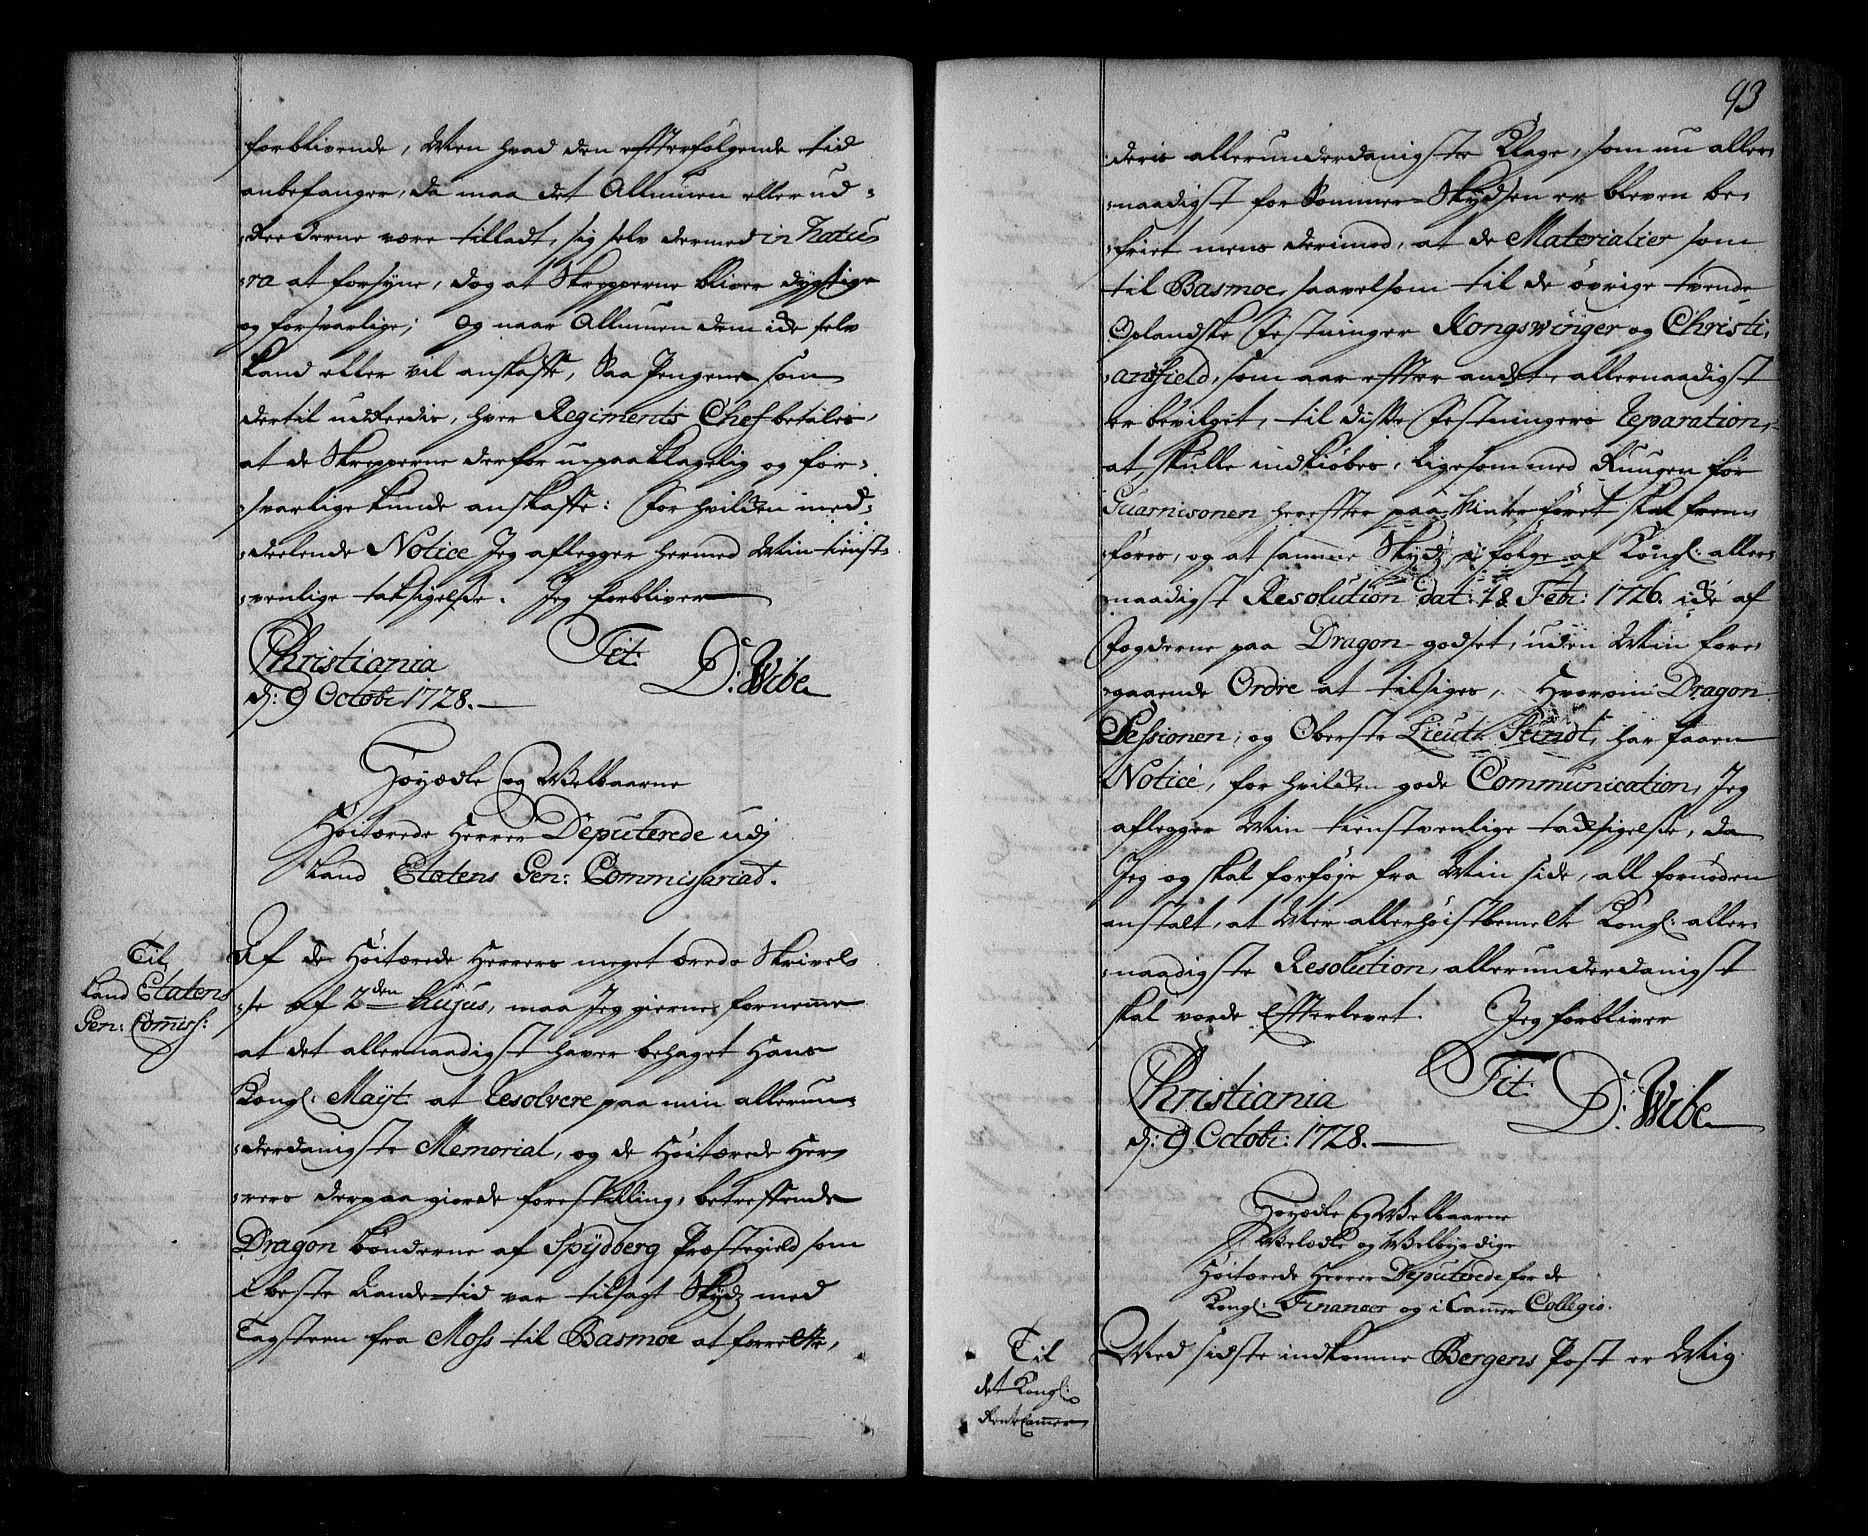 forblivende, Men hvad den effterfølgende tid
anbefanger, da maa det Allmuen eller ud-
-Reederne være tilladt, sig selv dermed in Natu-
-ra at forsyne, dog at Skrepperne bliver dygtige
og forsvarlige; Og naar Allmuen dem icke selv
kand eller vil anskaffe, Saa Pengene som
dertil udReedis, hver Regiments Chef betales,
at de Skrepperne derfor upaaklagelig og for-
-svarlige kunde anskaffe: For hvilcken med-
-deelende Notice Jeg aflegger hermed Min tienst-
-venlige taksigelse. Jeg forbliver
Christiania Tit: D: Wibe
d: 9 Octobr: 1728.
Høyædle og Welbaarne
Høitærede Herrer Deputerede udj
Land Etatens Gen: Commissariat.
Til
Land Etatens
Gen: Comiss:
Af de Høitærede Herrers meget ærede Skrivel-
-se af 2den hujus, maa Jeg gierne fornemme
at det allernaadigst haver behaget Hans
Kongl: Mayt: at Resolvere paa min allerun-
-derdanigste Memorial, og de Høitærede Her-
-rers derpaa giorde forestilling, betreffende
Dragon bønderne af Spydberg Præstegield som
i beste Aande-tid var tilsagt Skydz med
Tagsteen fra Moss til Basmoe at forrette,
93
deris allerunderdanigste Klage, som nu aller-
-naadigst for Sommer-Skydsen er bleven be-
-friet mens derimod, at de Materialier som
til Basmoe, saavelsom til de øvrige tvende
Oplandske Festninger Kongswinger og Christi-
-ansfield, som aar effter andet allernaadigst
er bevilget, til disse Festningers Reparation,
at skulle indkiøbes, ligesom med Ruugen for
Guarnisonen hereffter paa Winterføret skal frem-
-føres, og at samme Skydz i følge af Kongl: aller-
-naadigst Resolution dat: 18 Febr: 1726. icke af
Fogderne paa Dragon-godset, uden Min fore-
-gaaende Ordre at tilsiges, Hvorom Dragon
Sessionen, og Oberste Lieut: har faaen
Notice, for hvilcken gode Communication, Jeg
aflegger Min tienstvenlige tacksigelse, da
Jeg og skal forføje fra Min side, all fornøden
anstalt, at Mer allerhøistbemelte Kongl: aller-
-naadigste Resolution, allerunderdanigst
skal vorde Effterlevet. Jeg forbliver
Christiania Tit: D: Wibe
d: 9 Octobr: 1728.
Høyædle og Welbaarne
Welædle og Welbyrdige
Høitærede Herrer Deputerede for de
Kongl: Financer og i Cammer Collegio.
Til
det Kongl:
Rente Cammer
Med sidste indkomne Bergens Post er Mig